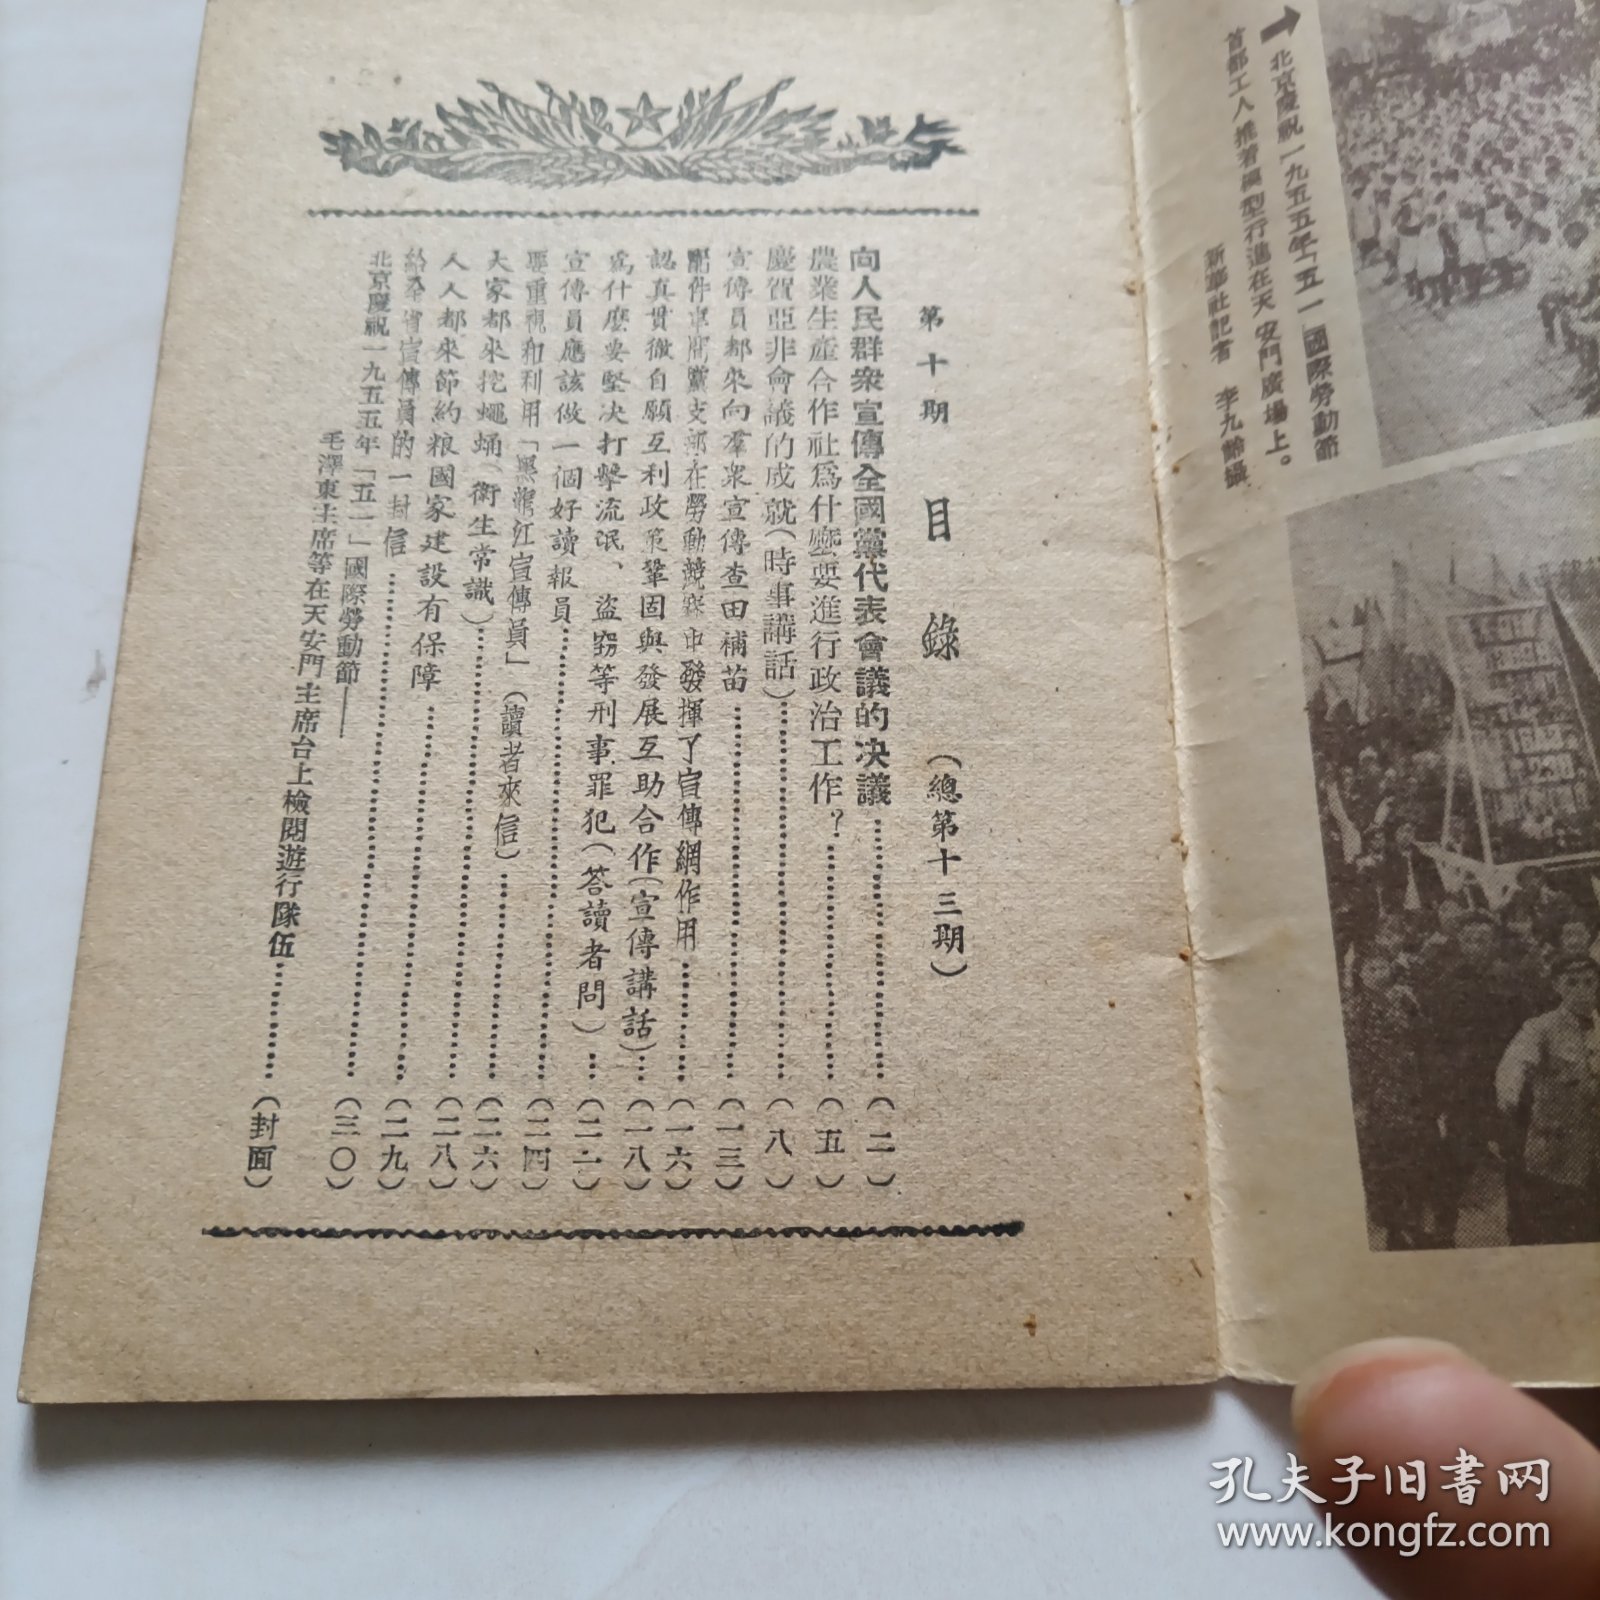 北京慶祝一九五五年「五一」國際勞動節
首都工人推着模型行進在天安門廣場上。
新華社記者 李九齡攝
第十期 目錄 (總第十三期)
向人民群衆宣傳全國黨代表會議的决議…………(二)
農業生產合作社爲什麼要進行政治工作?…………(五)
慶賀亞非會議的成就(時事講話)…………(八)
宣傳員都來向羣衆宣傳查田補苗…………(一三)
配件車間黨支部在勞動競賽中發揮了宣傳網作用…………(一六)
認真貫徹自願互利政策鞏固與發展互助合作(宣傳講話)…(一八)
爲什麼要堅决打擊流氓、盜窃等刑事罪犯(答讀者問)…(二二)
宣傳員應該做一個好讀報員…………(二四)
要重視和利用「黑龍江宣傳員」(讀者來信)…………(二六)
大家都來挖蠅蛹(衛生常識)…………(二八)
人人都來節約粮國家建設有保障…………(二九)
給全省宣傳員的一封信…………(三〇)
北京慶祝一九五五年「五一」國際勞動節——
毛澤東主席等在天安門主席台上檢閱遊行隊伍…………(封面)
孔夫子旧书网
www.kongfz.com